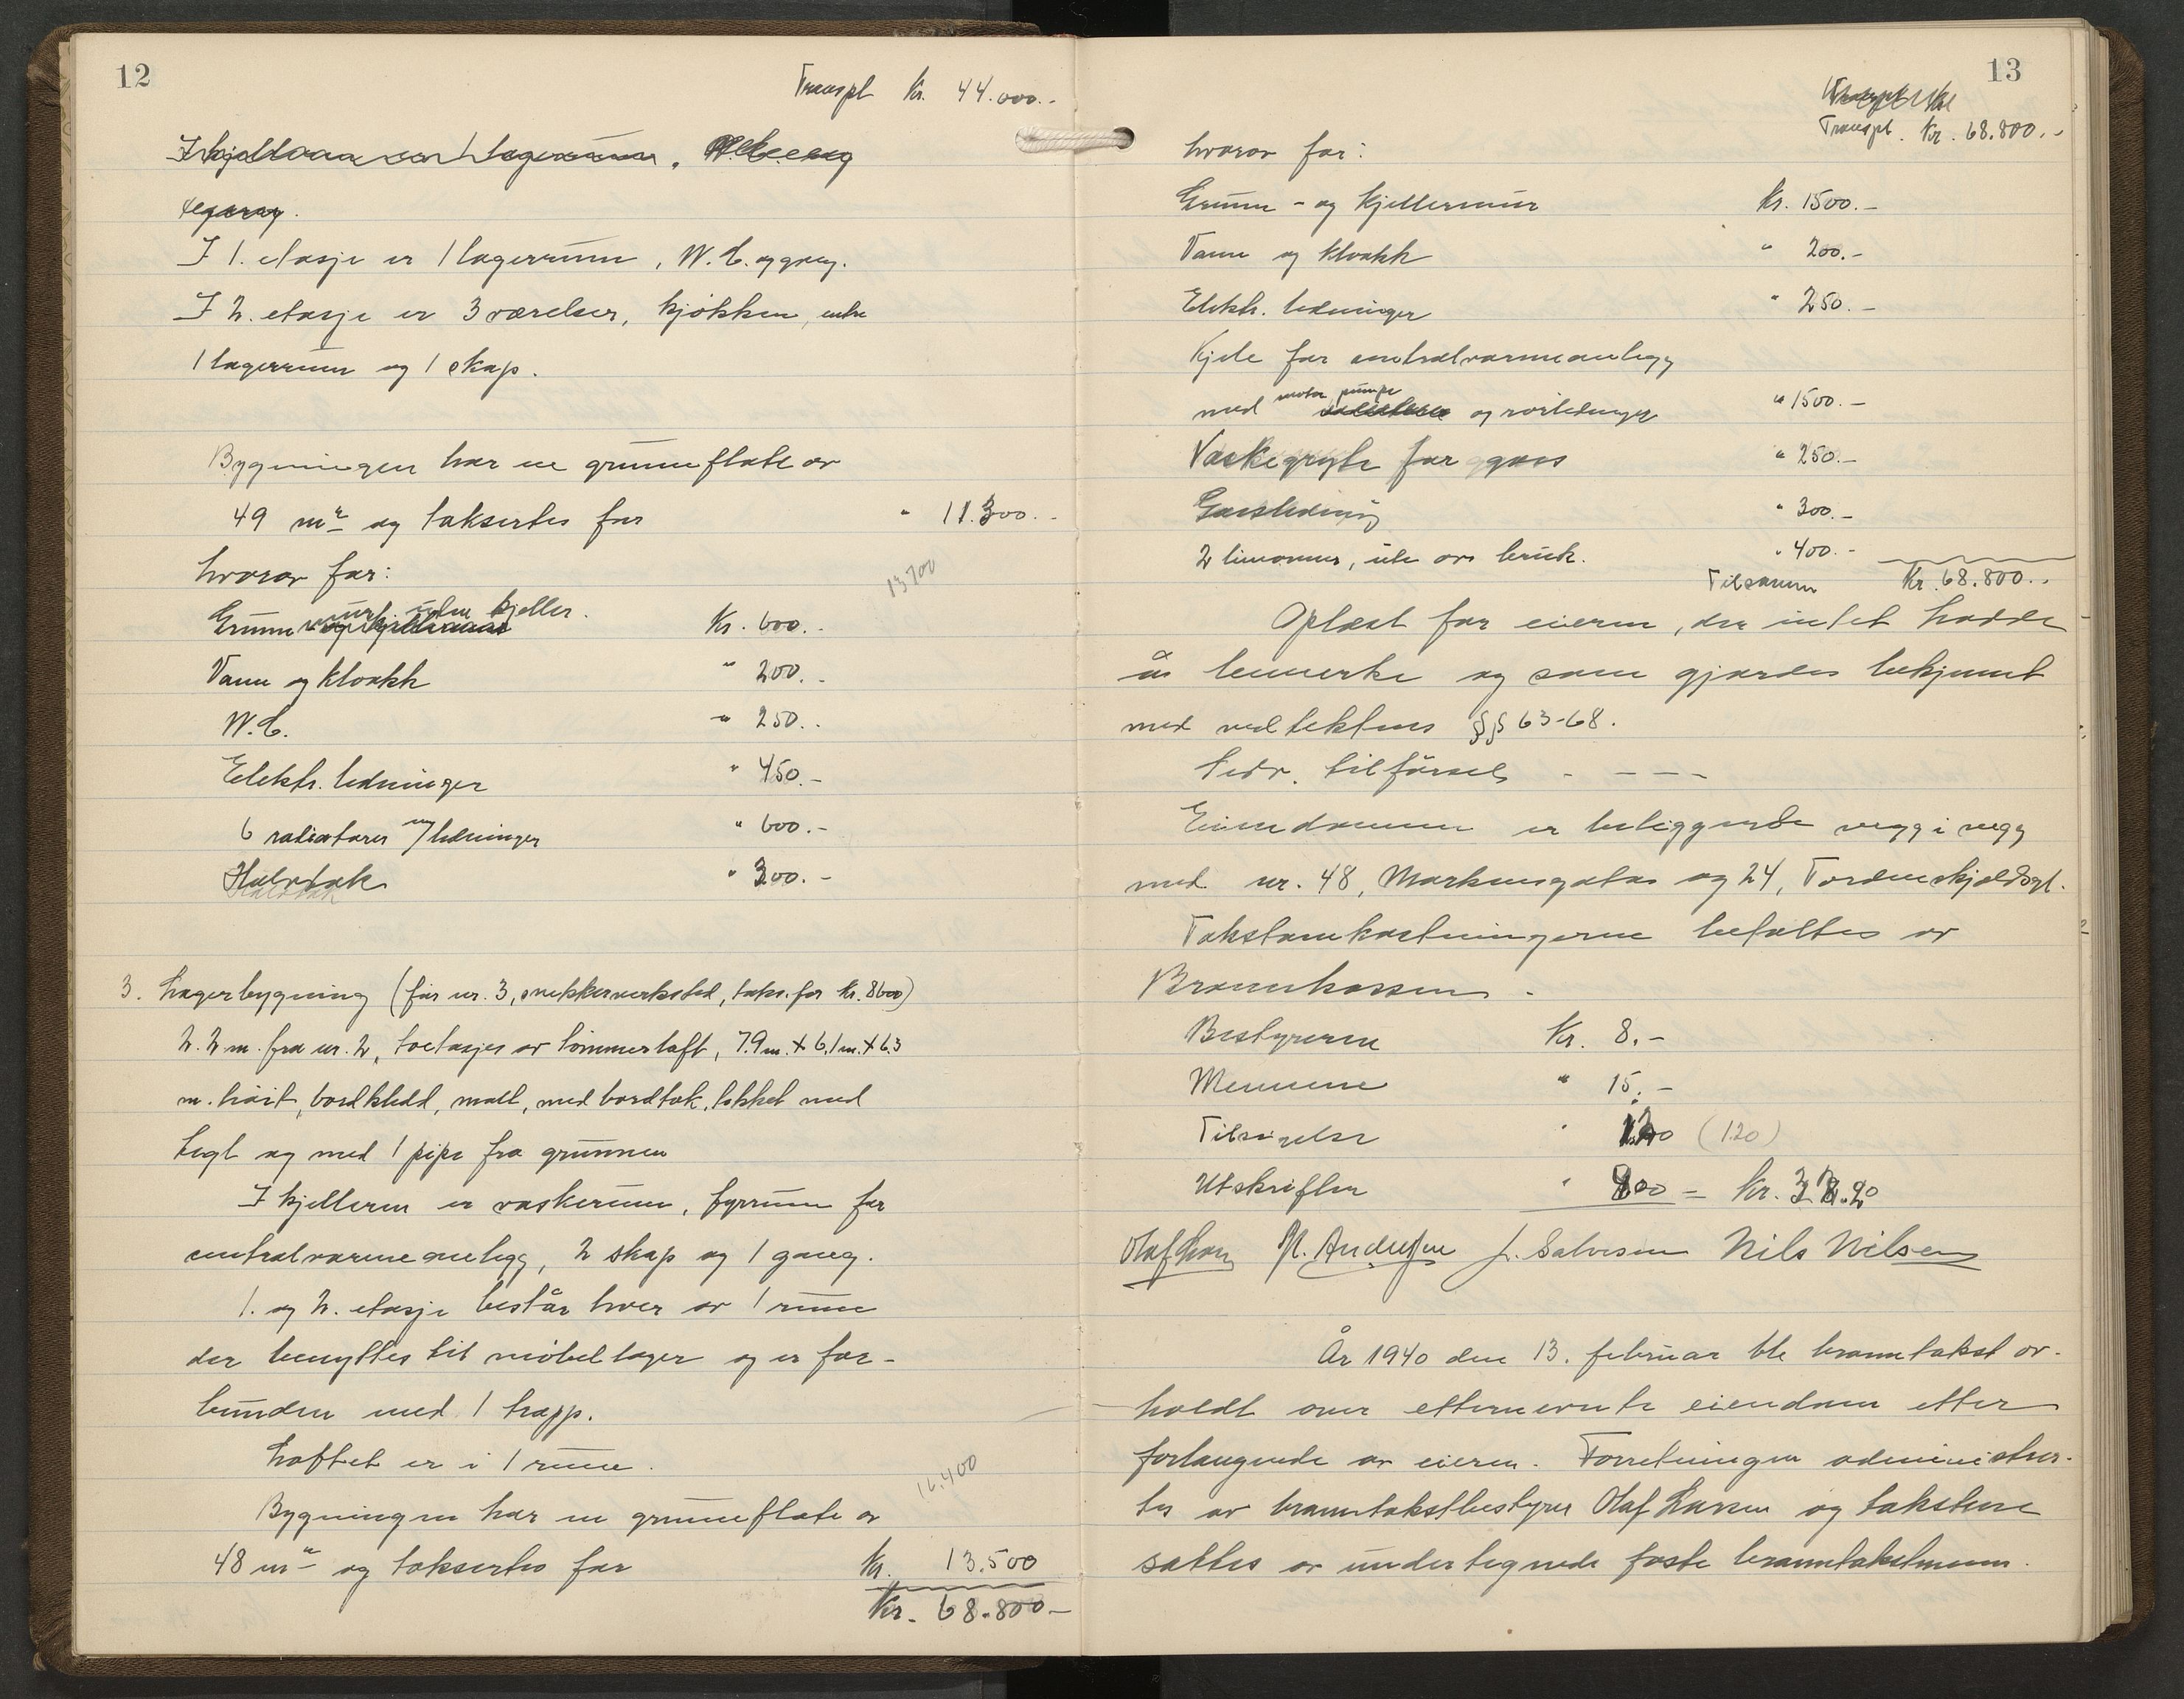 12
Transpt Kr. 44.000.-
I 1. etasje er 1 lagerrum, W.C. og gang.
I 2. etasje er 3 værelser, kjøkken, entre
1 lagerrum og 1 skap.
Bygningen har en grunnflate av
49 m² og takseres for " 11.300.-
hvorav for: 13700
Grunnmur, uten kjeller. Kr. 600.-
Vann og kloakk " 200.-
W.C. " 250.-
Elektr. ledninger " 450.-
6 radiatorer m/ledninger " 600.-
Halvtak " 300.-
3. Lagerbygning (før nr. 3, snekkerverksted, taks. for Kr. 8600)
2.2 m. fra nr. 2, toetasjes av tømmer laft, 7.9 m. x 6.1 m. x 6.3
m. høit, bordkledd, malt, med bordtak, tekket med
tegl og med 1 pipe fra grunnen
I kjelleren er vaskerum, fyrrum for
centralvarmeanlegg, 2 skap og 1 gang.
1. og 2. etasje består hver av 1 rum
der benyttes til møbellager og er for-
bunden med 1 trapp.
Loftet er i 1 rum.
16.400
Bygningen har en grunnflate av
48 m² og takseres for Kr. 13.500
Kr. 68.800-
13
Transpt. Kr. 68.800.-
hvorav for:
Grunn- og kjellermur Kr. 1500.-
Vann og kloakk " 200.-
Elektr. ledninger " 250.-
Kjele for centralvarmeanlegg
med motor pumpe og rørledninger " 1500.-
Vaskegryte for gass " 250.-
Gassledning " 300.-
2 limovner, ute av bruk. " 400.-
Tilsammen Kr. 68.800.-
Oplest for eieren, der intet hadde
å bemerke og som gjordes bekjennt
med vedtektens §§ 63-68.
Vedr. tilførsel - - - -
Eiendommen er beliggende vegg i vegg
med nr. 48, Markensgatas og 24, Tordenskjoldsgt.
Takstomkostningerne befaltes av
Brannkassen.
Bestyreren Kr. 8.-
Mennene " 15.-
Tilsigelse " 1.20 (1.20)
Utskriften " 8.00 = Kr. 32.20
Olaf Larsen N. Andersen J. Salvesen Nils Nilsen
År 1940 den 13. februar ble branntakst av-
holdt over etternevnte eiendom etter
forlangende av eieren. Forretningen administrer-
tes av branntakstbestyrer Olaf Larsen og takstene
sattes av undertegnede faste branntakstmenn.